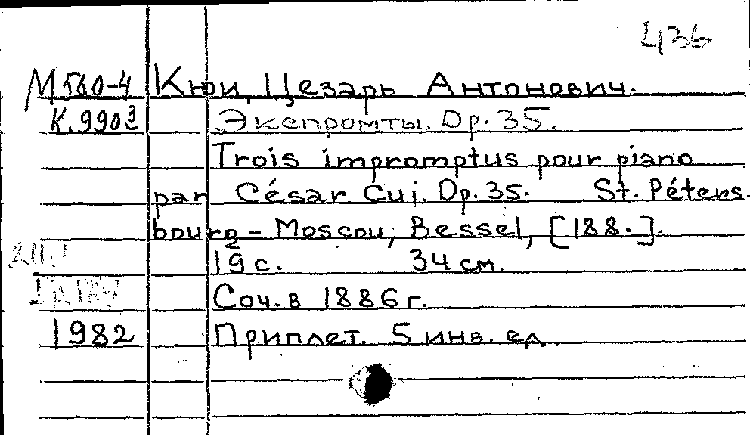 436
М560-4 Кюи, Цезарь Антонович.
К.9903 Экспромты. Op. 35.
Trois impromptus pour piano
par César Cui. Op. 35. St. Péters
bourg - Moscou, Bessel, [188.].
19 с. 34 см.
Соч. в 1886 г.
1982 Приплет. 5 инв. ед.